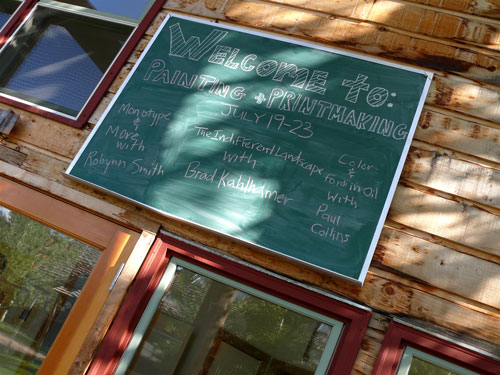 WELCOME to:
PAINTING + PRINTMAKING
JULY 19-23
Monotype
&
More
with
Robynn Smith
The Indifferent Landscape
with
Brad Kahlhamer
Color
&
Form in Oil
with
Paul
Collins